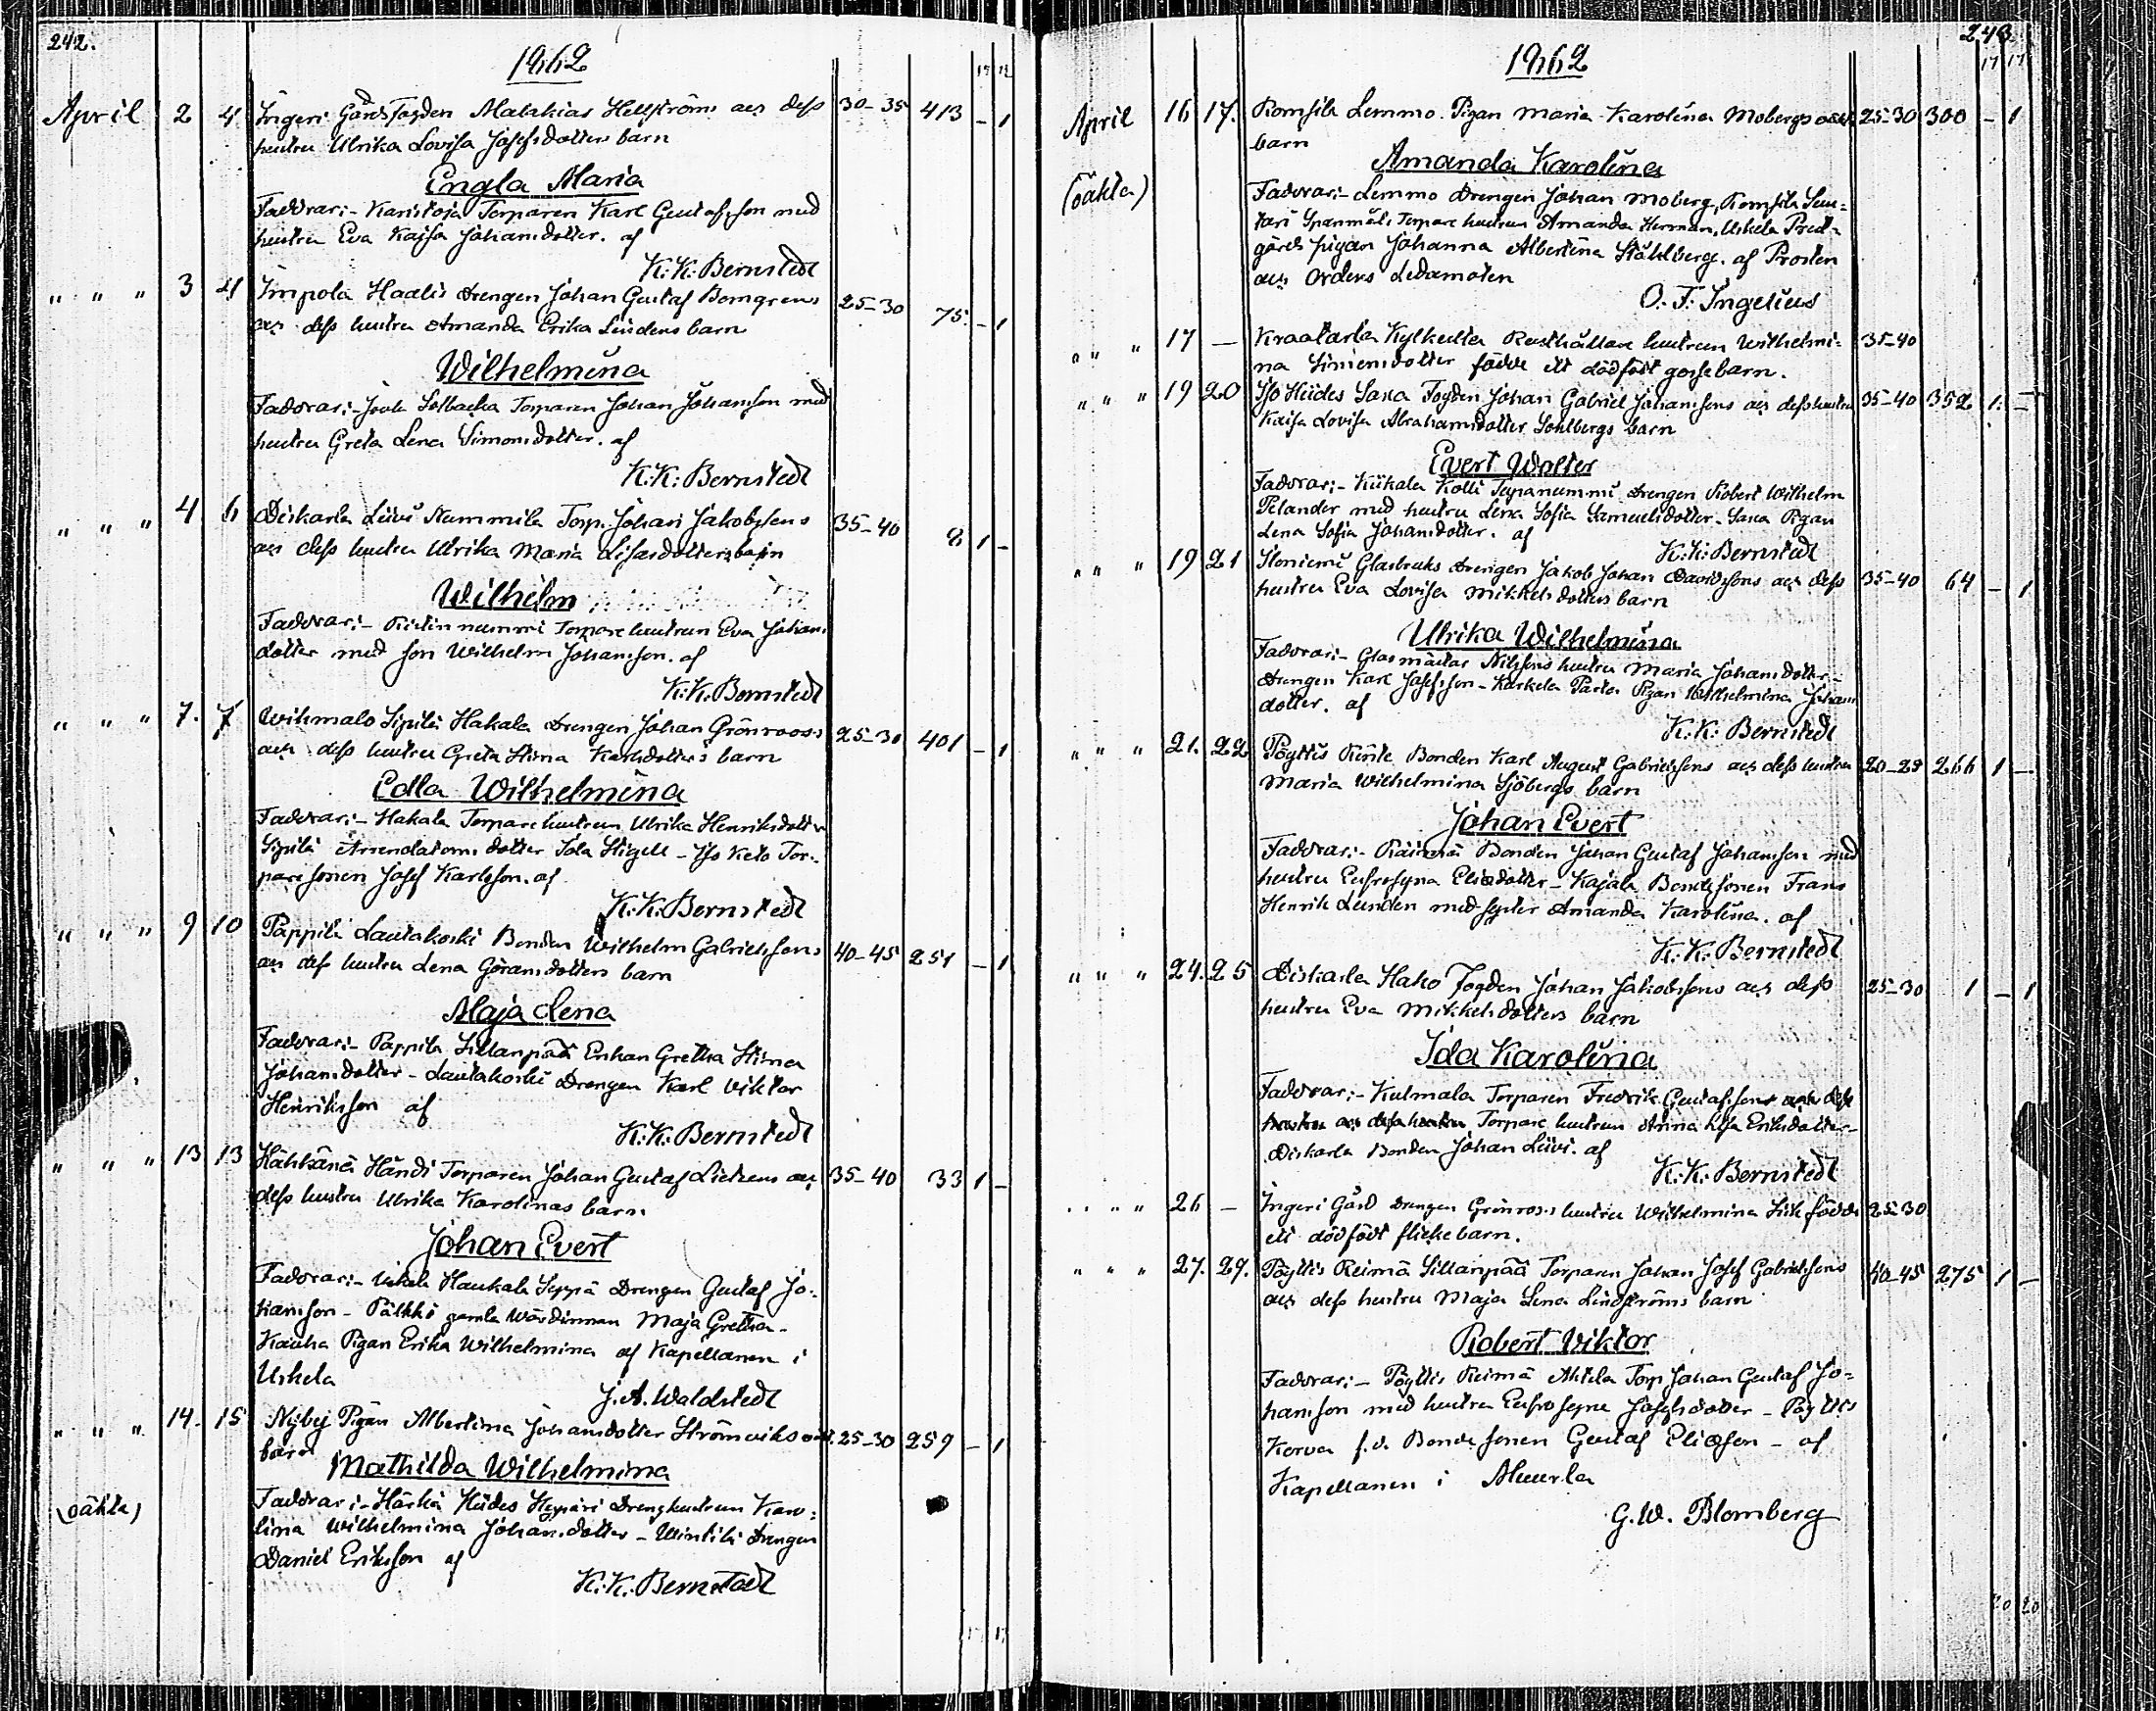 242.
1862
17 12
April 2 4 Ingeri Gårds Fogden Malakias Hellströms och dess 30-35 413 - 1
hustru Ulrika Lovisa Josefsdotters barn
Engla Maria
Faddrar:- Karistoja Torparen Karl Gustafsson med
hustru Eva Kajsa Johansdotter. af
K. K. Bernstedt
" " " 3 4 Impola Haalis drengen Johan Gustaf Bomgrens 25-30 75. - 1
och dess hustru Amanda Erika Lindens barn
Wilhelmina
Faddrar:- Solbacka Torparen Johan Johansson med
hustru Greta Lena Simonsdotter. af
K. K. Bernstedt
" " " 4 6 Diskarla Liivi Nummila Torp. Johan Jakobssons 35-40 8 1 -
och dess hustru Ulrika Maria barn
Wilhelm
Faddrar:- Torpare hustrun Eva Johans
dotter med son Wilhelm Johansson. af
K. K. Bernstedt
" " " 7. 7 Wihmalo Sipilä Hakala Drengen Johan Grönroos's 25-30 401 - 1
och dess hustru Greta Stina Karlsdotters barn
Edla Wilhelmina
Faddrar:- Hakala Torpare hustrun Ulrika Henriksdotter
Sipilä Arrendatorns dotter Ida Stigell - Iso Keto Tor-
pare sonen Josef Karlsson. af
K. K. Bernstedt
" " " 9 10 Pappila Lautakoski Bonden Wilhelm Gabrielssons 40-45 251 - 1
och dess hustru Lena Göransdotters barn
Maja Lena
Faddrar:- Pappila Sillanpää Enkan Gretha Stina
Johansdotter - Lautakoski Drengen Karl Viktor
Henriksson af
K. K. Bernstedt
" " " 13 13 Händi Torparen Johan Gustaf och 35-40 33 1 -
dess hustru Ulrika Karolinas barn
Johan Evert
Faddrar:- Uskela Haukala Seppä Drengen Gustaf Jo-
hansson - Pälkki gamla Wärdinnan Maja Gretha -
Kauha Pigan Erika Wilhelmina af Kapellanen i
Uskela
J. A. Waldstedt
" " " 14. 15 Nyby Pigan Albertina Johansdotter Strömviks 25-30 259 - 1
barn
Mathilda Wilhelmina
(oäkta)
Faddrar:- Härkä Hiides Drenghustrun Karo-
lina Wilhelmina Johansdotter - Wintilä drengen
Daniel Eriksson af
K. K. Bernstedt
243.
1862
17 17
April 16 17. Romsila Lemmo Pigan Maria Karolina Mobergs 25-30 300 - 1
barn
Amanda Karolina
(oäkta)
Faddrar:- Lemmo Drengen Johan Moberg, Romsila
Torpare hustrun Amanda Herman, Uskela Prest-
gårds pigan Johanna Albertina Ståhlberg. af Prosten
och Ordens Ledamoten
O. F. Ingelius
" " " 17 - Kraatarla Kylkulla Rusthållare hustrun Wilhelmi- 35-40
na Simonsdotter födde ett dödfödt gossebarn.
" " " 19 20 Iso Hiides Saxa Fogden Johan Gabriel Johanssons och dess hustru 35-40 352 1. -
Kaisa Lovisa Abrahamsdotter Sohlbergs barn
Evert Walter
Faddrar:- Kiikala Kolli Drengen Robert Wilhelm
Pelander med hustru Lena Sofia Samuelsdotter - Saxa Pigan
Lena Sofia Johansdotter. af
K. K. Bernstedt
" " " 19 21 Glasbruks drengen Jakob Johan Davidssons och dess 35-40 64 - 1
hustru Eva Lovisa Mikkelsdotters barn
Ulrika Wilhelmina
Faddrar:- Glasmästar Nilssons hustru Maria Johansdotter -
drengen Karl Josefsson - Karkela Pigan Wilhelmina Johans
dotter. af
K. K. Bernstedt
" " " 21. 22 Pöyttis Bonden Karl August Gabrielssons och dess hustru 20-25 266 1 -
Maria Wilhelmina Sjöbergs barn
Johan Evert
Faddrar:- Bonden Johan Gustaf Johansson med
hustru Eufrosyna Eliedotter - Kajala Bondesonen Frans
Henrik Lunden med syster Amanda Karolina. af
K. K. Bernstedt
" " " 24. 25 Diskarla Hako Fogden Johan Jakobssons och dess 25-30 1 - 1
hustru Eva Mikkelsdotters barn
Ida Karolina
Faddrar:- Kulmala Torparen Fredrik Gustafsson
Torpare hustrun Anna Lisa Eriksdotter -
Diskarla Bonden Johan Liivi. af
K. K. Bernstedt
" " " 26 - Ingeri Gård Drengen Grönroos's hustru Wilhelmina födde 25-30
ett dödfödt flickebarn.
" " " 27. 29. Pöyttis Reimä Sillanpää Torparen Johan Josef Gabrielssons 40-45 275 1 -
och dess hustru Maja Lena Lindströms barn
Robert Viktor
Faddrar:- Pöyttis Reimä Ahtela Torp Johan Gustaf Jo-
hansson med hustru Eufrosyne Josefsdotter - Pöyttis
Korva f.d. Bonde sonen Gustaf Eliasson - af
Kapellanen i Muurla
G. W. Blomberg
20 20